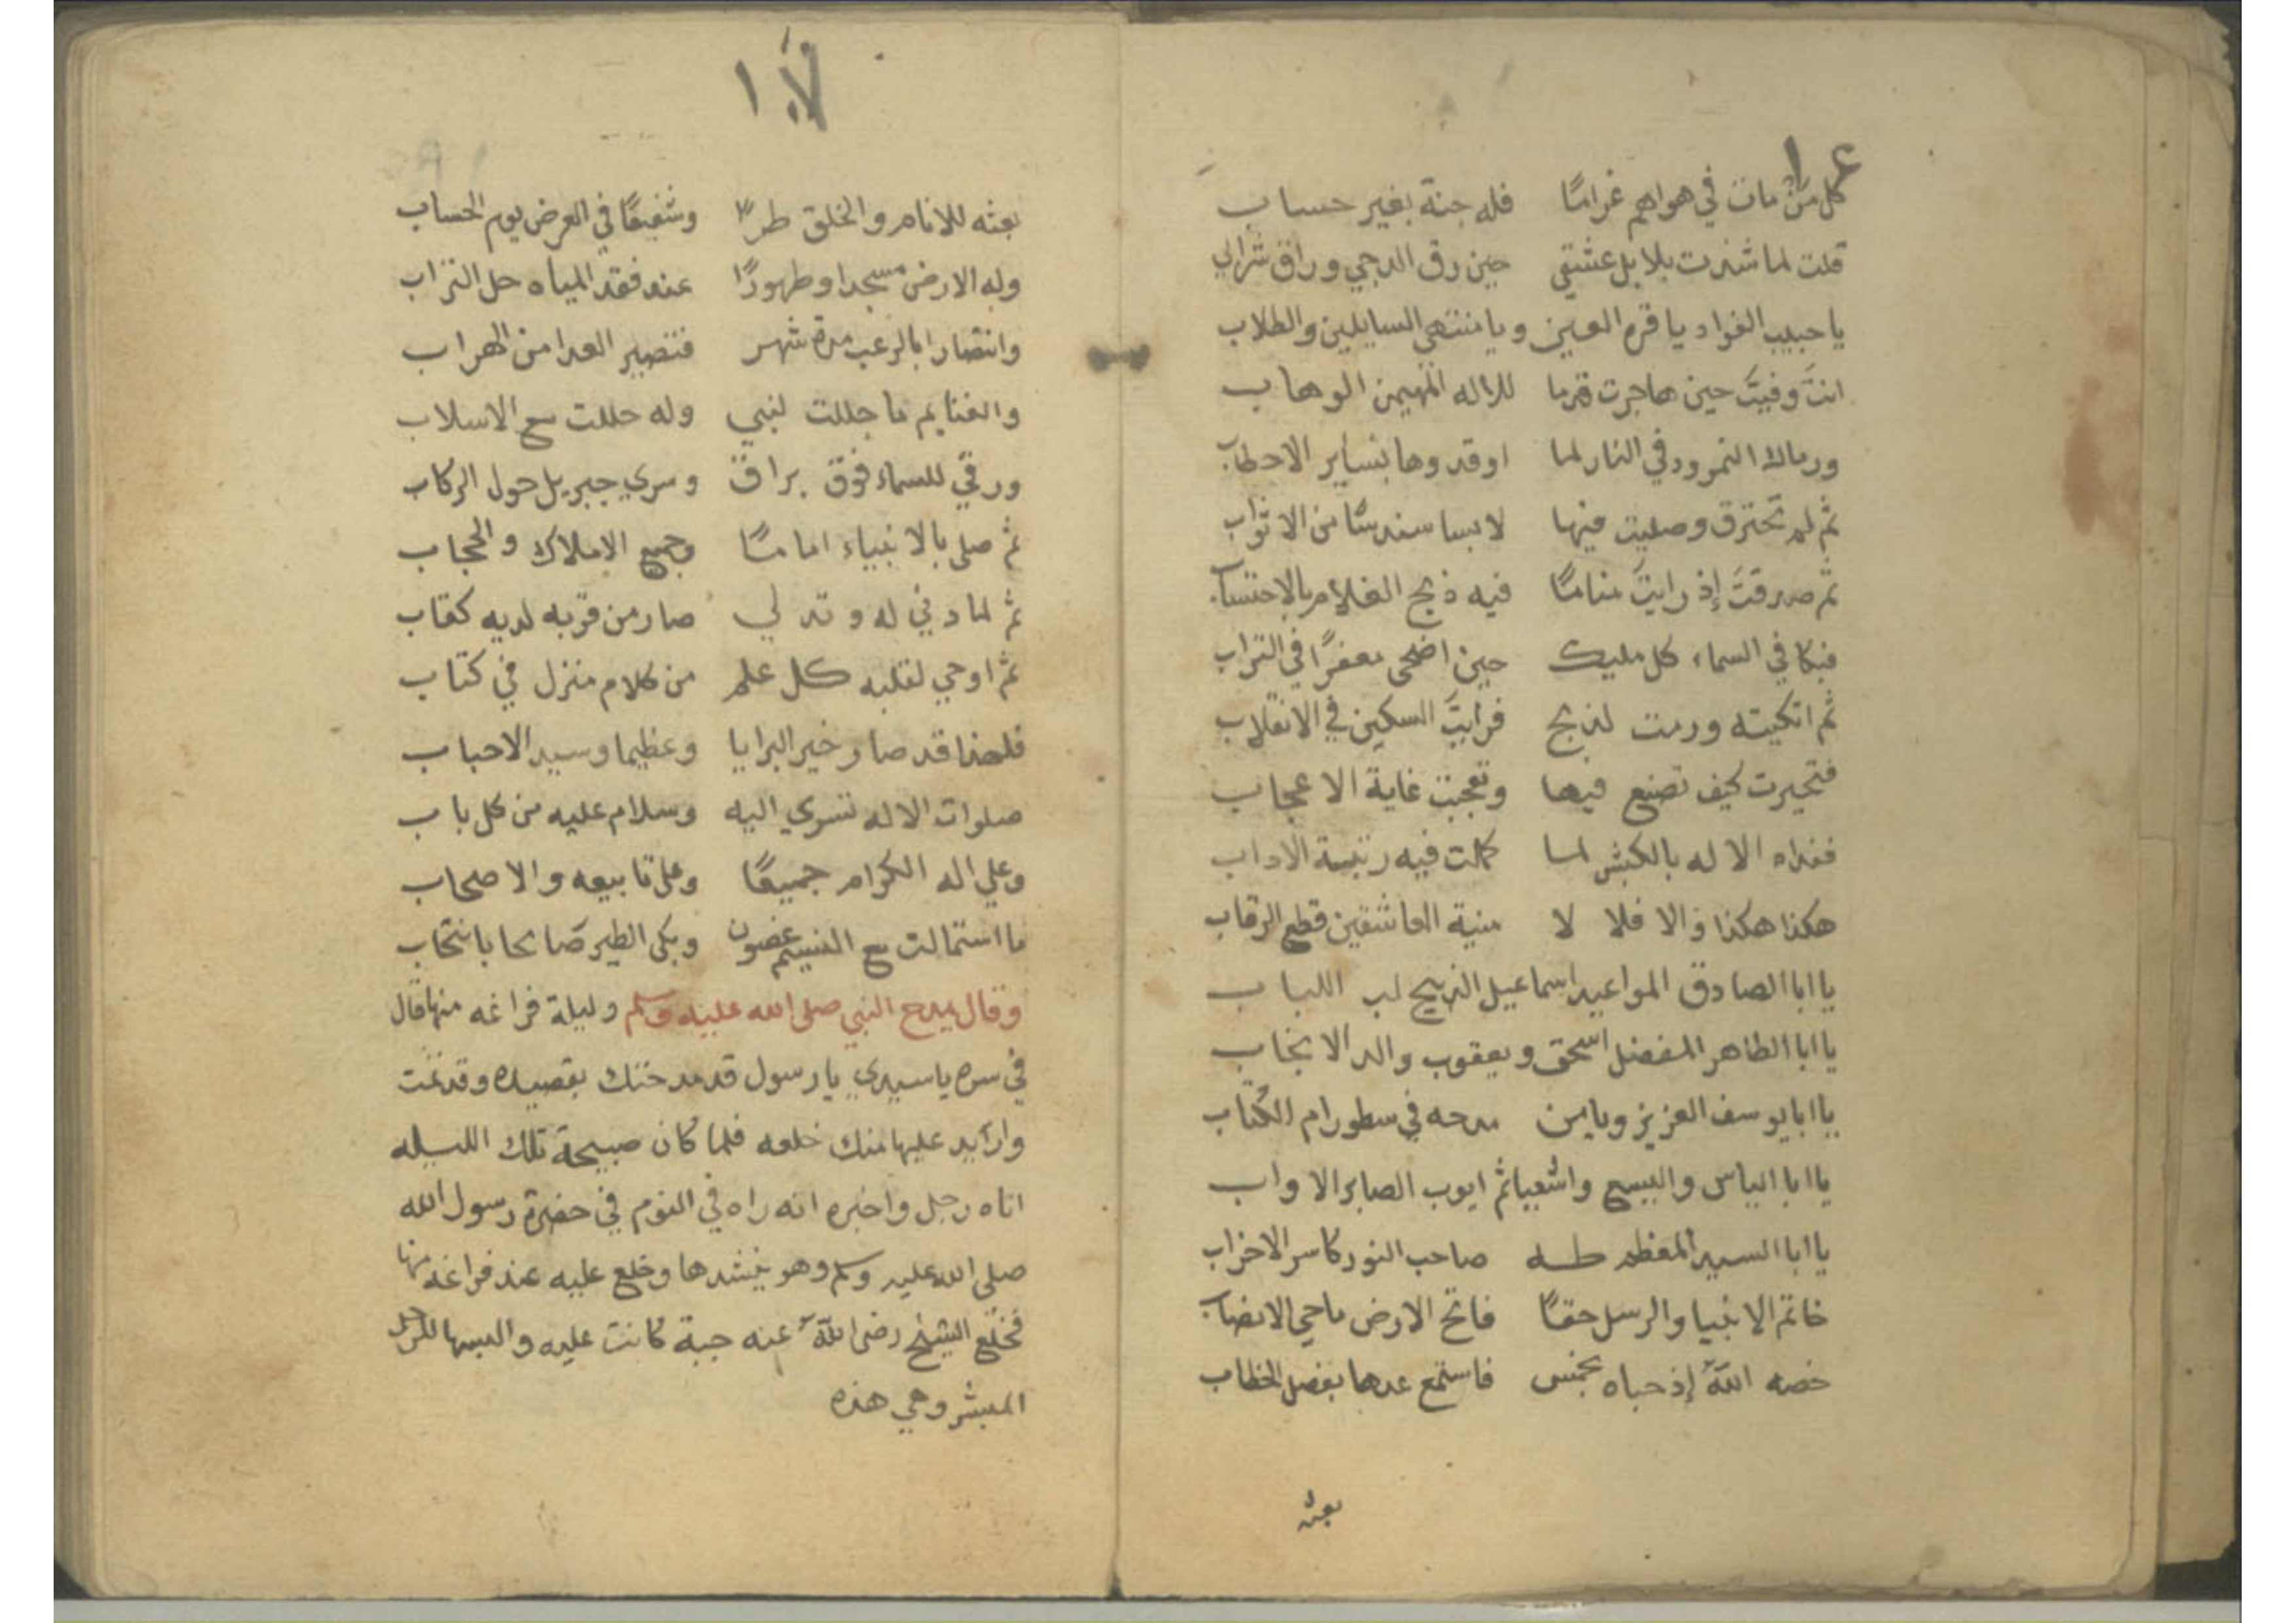 كل من مات في هواهم غرامًا فله جنة بغير حساب
قلت لما شدت بلابل عشقي حين رق الدجي وراق شرابي
يا حبيب الفواد يا قرة العين ويا منتهى السايلين والطلاب
انتَ وفيتَ حين هاجرت قدما للاله المهيمن الوهاب
ورماك النمرود في النار لما اوقدوها بساير الاحطاب
ثم لم تحترق وصليت فيها لابسا سندسًا من الاثواب
ثم صدقتَ إذ رايتَ منامًا فيه ذبح الغلام بالاحتساب
فبكا في السماء كل مليك حين اضحى معفرًا في التراب
ثم اتكيته ورمت لذبح فرايتَ السكين في الانقلاب
فتحيرت كيف تصنع فيها وتعجبت غاية الاعجاب
ففداه الاله بالكبش لما كملت فيه رتبة الاداب
هكذا هكذا والا فلا لا منية العاشقين قطع الرقاب
يا ابا الصادق المواعيد اسماعيل الذبيح لب اللباب
يا ابا الطاهر المفضل اسحق ويعقوب والد الانجاب
يا ابا يوسف العزيز ويامن مدحه في سطور ام الكتاب
يا ابا الياس واليسع واشعيا ثم ايوب الصابر الاواب
يا ابا السيد المعظم طه صاحب النور كاسر الاحزاب
خاتم الانبيا والرسل حقًا فاتح الارض ماحي الانصاب
خصه اللهُ إذ حباه بخمس فاستمع عدها بفصل الخطاب
بعثه
١
بعثه للانام والخلق طرًا وشفيعًا في العرض يوم الحساب
وله الارض مسجدا وطهورًا عند فقد المياه حل التراب
وانتصارا بالرعب مدة شهر فتصير العدا من الهراب
والغنايم ما حللت لنبي وله حللت مع الاسلاب
ورقي للسماء فوق براق وسري جبريل حول الركاب
ثم صلى بالانبياء امامًا وجميع الاملاك والحجاب
ثم لما دني له وتدلي صار من قربه لديه كقاب
ثم اوحي لقلبه كل علم من كلام منزل في كتاب
فلهذا قد صار خير البرايا وعظيما وسيد الاحباب
صلوات الاله تسري اليه وسلام عليه من كل باب
وعلي اله الكرام جميعًا وعلى تابيعه والاصحاب
ما استمالت مع النسيم غصون وبكى الطير صايحا بانتحاب
وقال يمدح النبي صلى الله عليه وسلم وليلة فراغه منها قال
في سره يا سيدي يا رسول قد مدحتك بقصيده وقد تمت
واريد عليها منك خلعه فلما كان صبيحة تلك الليله
اتاه رجل واخبره انه راه في النوم في حضرة رسول الله
صلى الله عليه وسلم وهو ينشدها وخلع عليه عند فراغه منها
فخلع الشيخ رضى اللهُ عنه جبة كانت عليه والبسها للرجل
المبشر وهي هذه